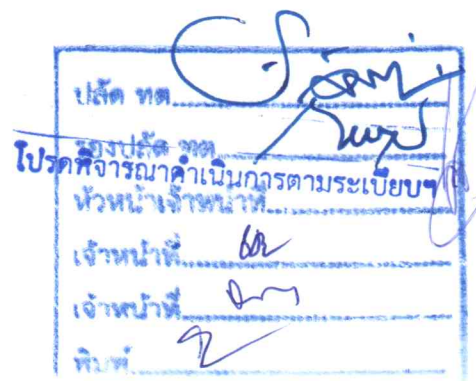 ปลัด ทต.
รองปลัด ทต.
โปรดพิจารณาดำเนินการตามระเบียบฯ
หัวหน้าเจ้าหน้าที่
เจ้าหน้าที่
เจ้าหน้าที่
พิมพ์